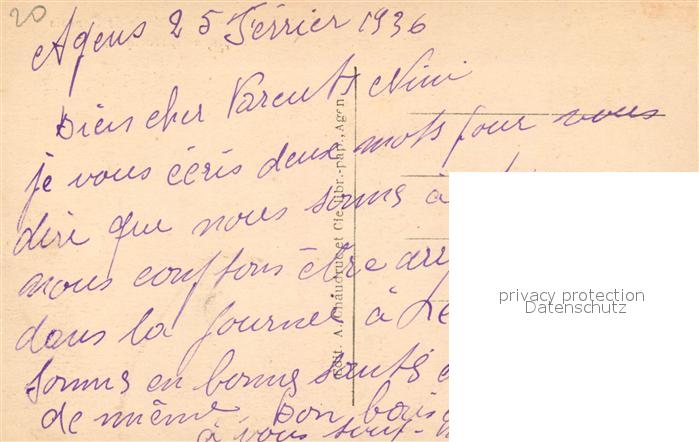 20
Agens 25 Février 1936
Bien cher Parents Nini
je vous écris deux mots pour vous
dire que nous somms à
nous comptons être
dans la journeé à
somms en bonns santés
de même. Bon bais
à vous tout
Edit. A. Chaudruc et Cie, libr.-pap., Agen
privacy protection
Datenschutz